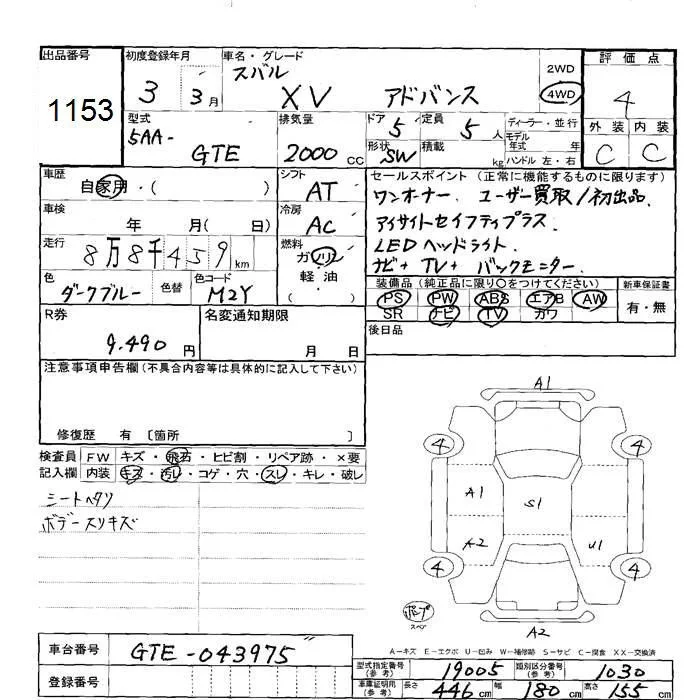 出品番号
1153
初度登録年月
3 3月
車名・グレード
スバル
XV アドバンス
2WD
4WD
評価点
4
外装 内装
C C
型式
5AA-
GTE
排気量
2000cc
ドア 5
定員 5人
形状 SW
積載 kg
ディーラー・並行
モデル年式 年
ハンドル 左・右
車歴
自家用・( )
シフト
AT
車検
年 月( 日)
冷房
AC
走行
8万8千459km
燃料
ガソリン
軽・油
( )
色
ダークブルー
色替
色コード
M2Y
セールスポイント (正常に機能するものに限ります)
ワンオーナー. ユーザー買取/初出品.
アイサイトセイフティプラス.
LEDヘッドライト.
ナビ+TV+バックモニター.
装備品(純正品に限り○をつけてください)
PS PW ABS エアB AW
SR ナビ TV カワ
新車保証書
有・無
R券
9.490円
名変通知期限
月 日
後日品
注意事項申告欄(不具合内容等は具体的に記入して下さい)
修復歴 有 〔箇所 〕
検査員記入欄
FW キズ・飛石・ヒビ割・リペア跡・×要
内装 キズ・汚レ・コゲ・穴・スレ・キレ・破レ
シートヘタリ
ボデースリキズ
A1
4 4
A1 S1
A2 U1
4 4
A2
スペア
A-キズ E-エクボ U-凹み W-補修跡 S-サビ C-腐食 XX-交換済
車台番号
GTE-043975
登録番号
型式指定番号(参考)
19005
類別区分番号(参考)
1030
車庫証明用(参考)
長さ 446cm
幅 180cm
高さ 155cm